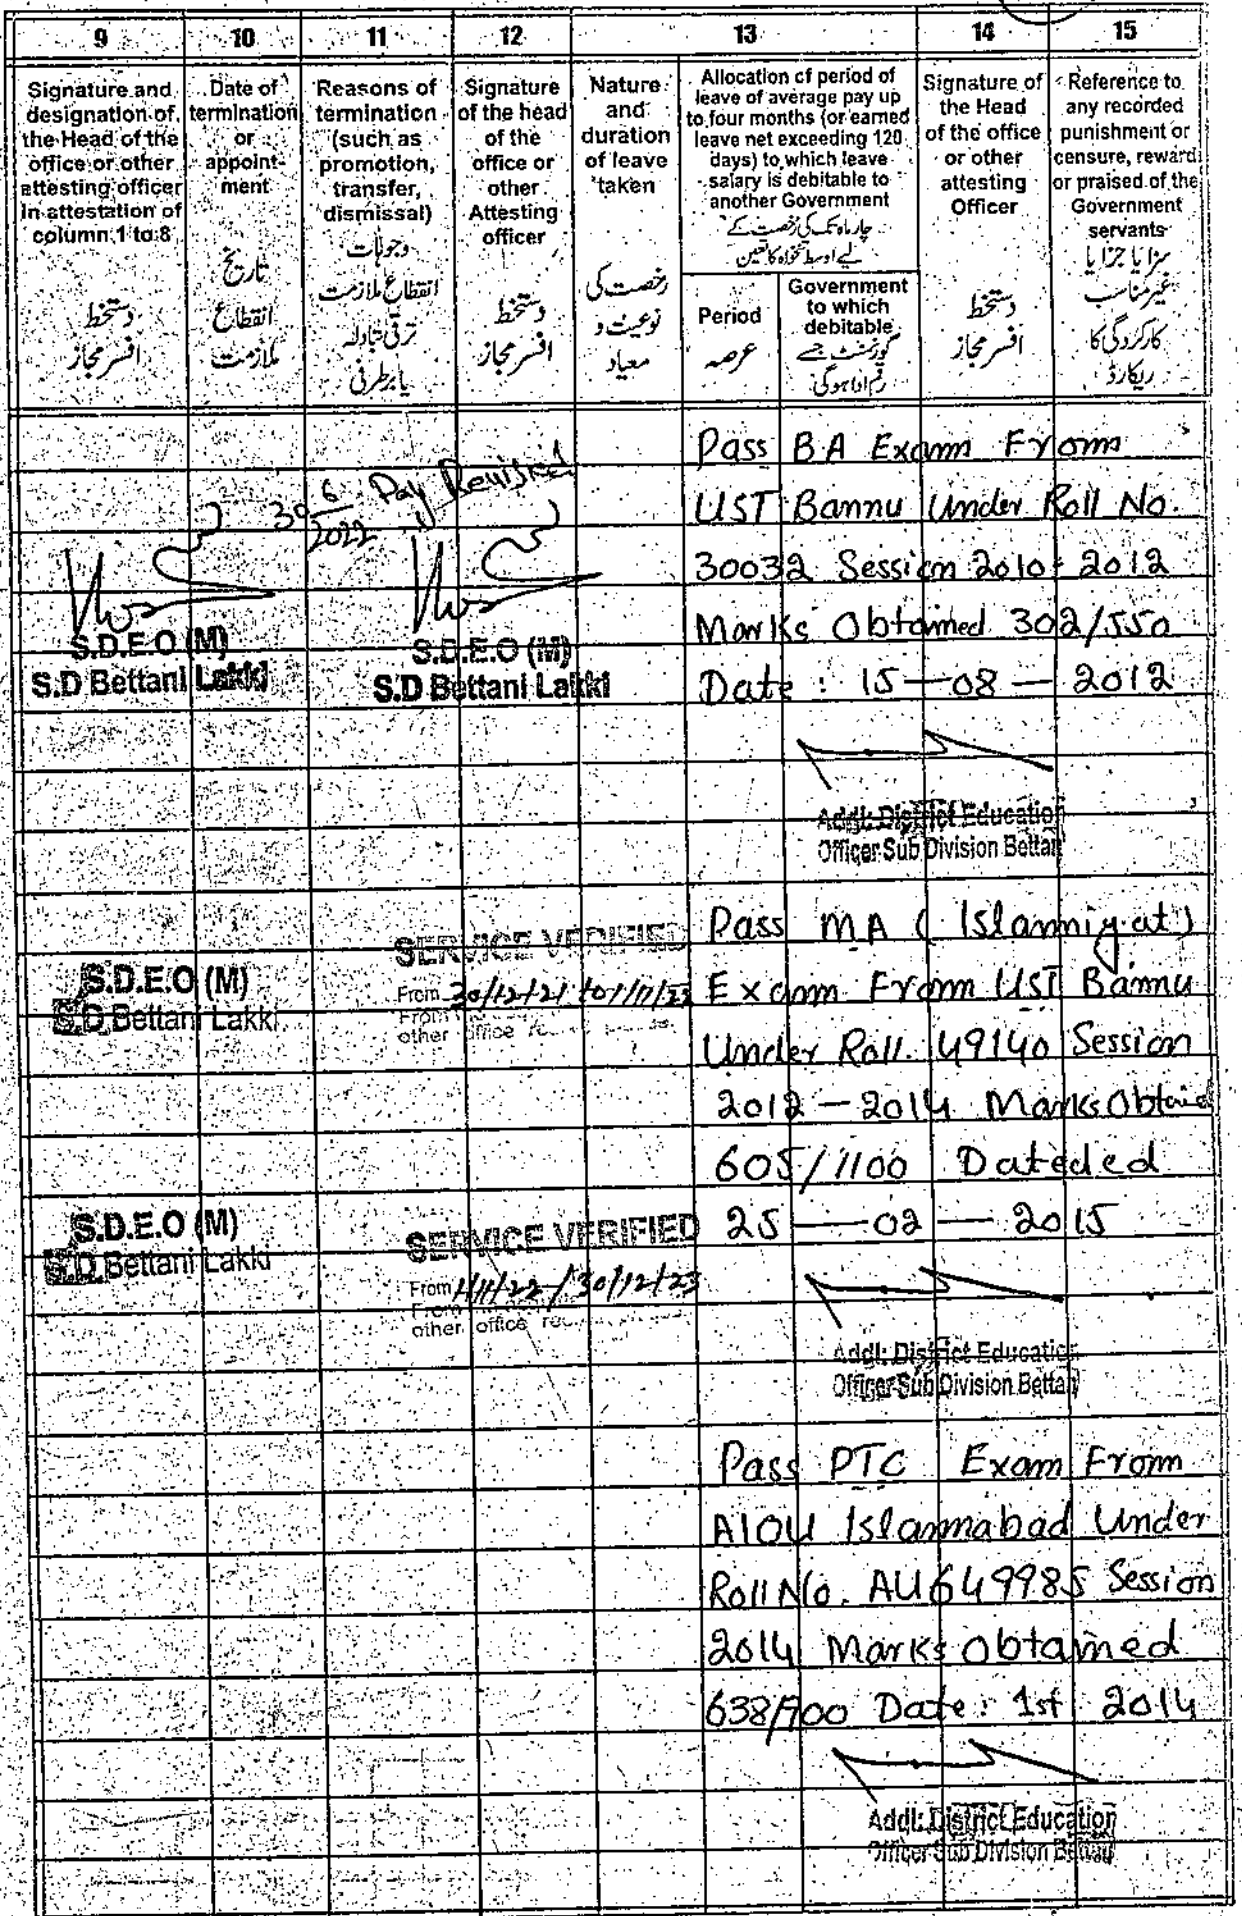 9 10 11 12 13 14 15
Signature and
designation of
the Head of the
office or other
attesting officer
in attestation of
column 1 to 8
دستخط
افسر مجاز
Date of
termination
or
appoint-
ment
تاریخ
انقطاع
ملازمت
Reasons of
termination
(such as
promotion,
transfer,
dismissal)
وجوہات
انقطاع ملازمت
ترقی تبادلہ
یا برطرفی
Signature
of the head
of the
office or
other
Attesting
officer
دستخط
افسر مجاز
Nature
and
duration
of leave
taken
رخصت کی
نوعیت و
معیاد
Allocation of period of
leave of average pay up
to four months (or earned
leave net exceeding 120
days) to which leave
salary is debitable to
another Government
چار ماہ تک کی رخصت کے
لیے اوسط تنخواہ کا تعین
Period
عرصہ
Government
to which
debitable
گورنمنٹ جسے
رقم ادا ہوگی
Signature of
the Head
of the office
or other
attesting
Officer
دستخط
افسر مجاز
Reference to
any recorded
punishment or
censure, reward
or praised of the
Government
servants
سزا یا جزا یا
غیر مناسب
کارکردگی کا
ریکارڈ
30 6 2022 Pay Revised
S.D.E.O (M)
S.D Bettani Lakki
S.D.E.O (M)
S.D Bettani Lakki
Pass BA Exam From
UST Bannu Under Roll No.
30032 Session 2010-2012
Marks Obtained 302/550
Date : 15-08-2012
Addl: District Education
Officer Sub Division Bettan
S.D.E.O (M)
S.D Bettani Lakki
SERVICE VERIFIED
From 30/12/21
From
other office
Pass MA (Islamiyat)
Exam From UST Bannu
Under Roll. 49140 Session
2012-2014 Marks Obtained
605/1100 Dateded
25-02-2015
S.D.E.O (M)
S.D Bettani Lakki
SERVICE VERIFIED
From 1/11/22-/30/12/23
From
other office
Addl: District Education
Officer Sub Division Bettan
Pass PTC Exam From
AIOU Islamabad Under
Roll No. AU649985 Session
2014 Marks Obtained
638/900 Date: 1st 2014
Addl: District Education
Officer Sub Division Bettan